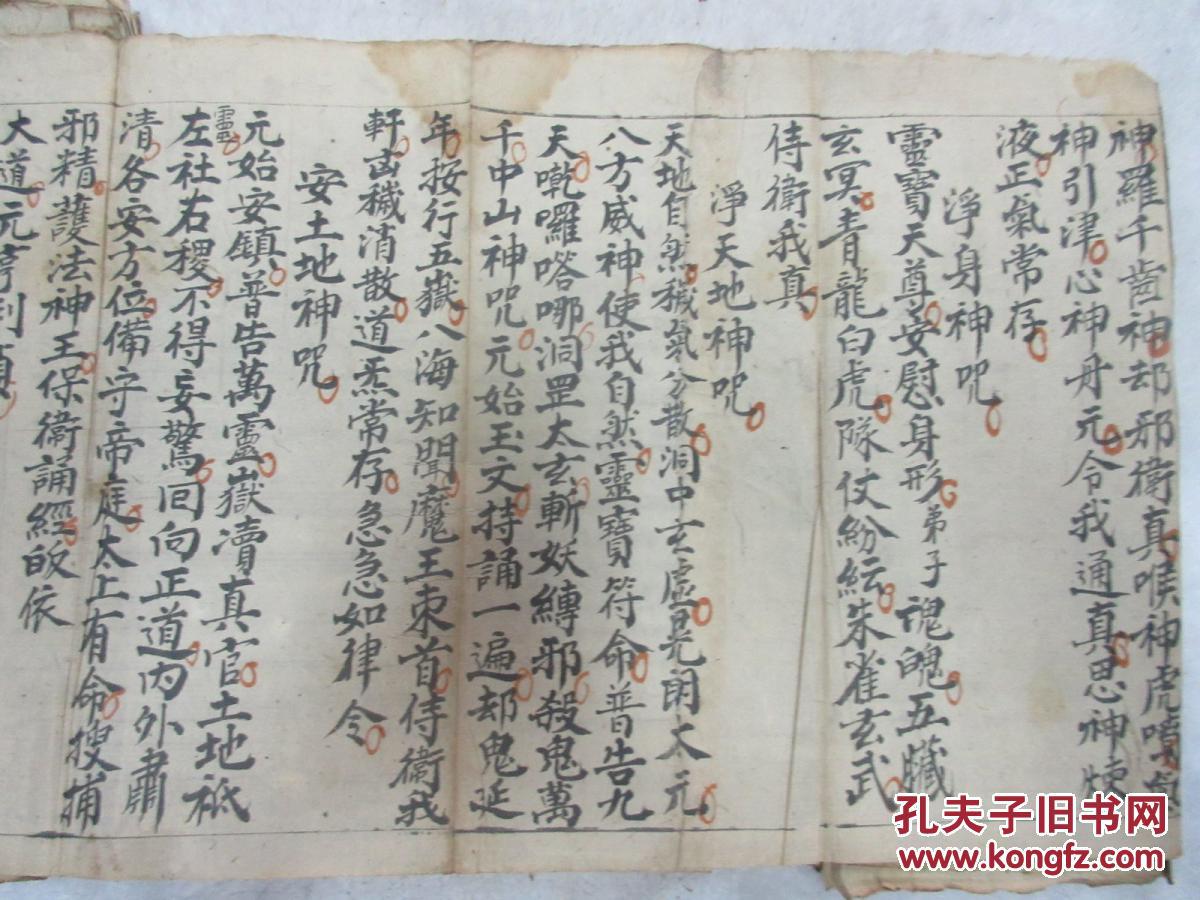 神羅千齒神却邪衛真喉神虎賁氣
神引津心神丹元令我通真思神煉
液正氣常存
淨身神咒
靈寶天尊安慰身形弟子魂魄五臟
玄冥青龍白虎隊仗紛紜朱雀玄武
侍衛我真
淨天地神咒
天地自然穢氣分散洞中玄虛晃朗太元
八方威神使我自然靈寶符命普告九
天乾囉嗒哪洞罡太玄斬妖縛邪殺鬼萬
千中山神咒元始玉文持誦一遍却鬼延
年按行五嶽八海知聞魔王束首侍衛我
軒凶穢消散道炁常存急急如律令
安土地神咒
元始安鎮普告萬靈嶽瀆真官土地祇
靈
左社右稷不得妄驚囘向正道內外肅
清各安方位備守帝庭太上有命搜捕
邪精護法神王保衛誦經皈依
大道元亨利貞
孔夫子旧书网
www.kongfz.com